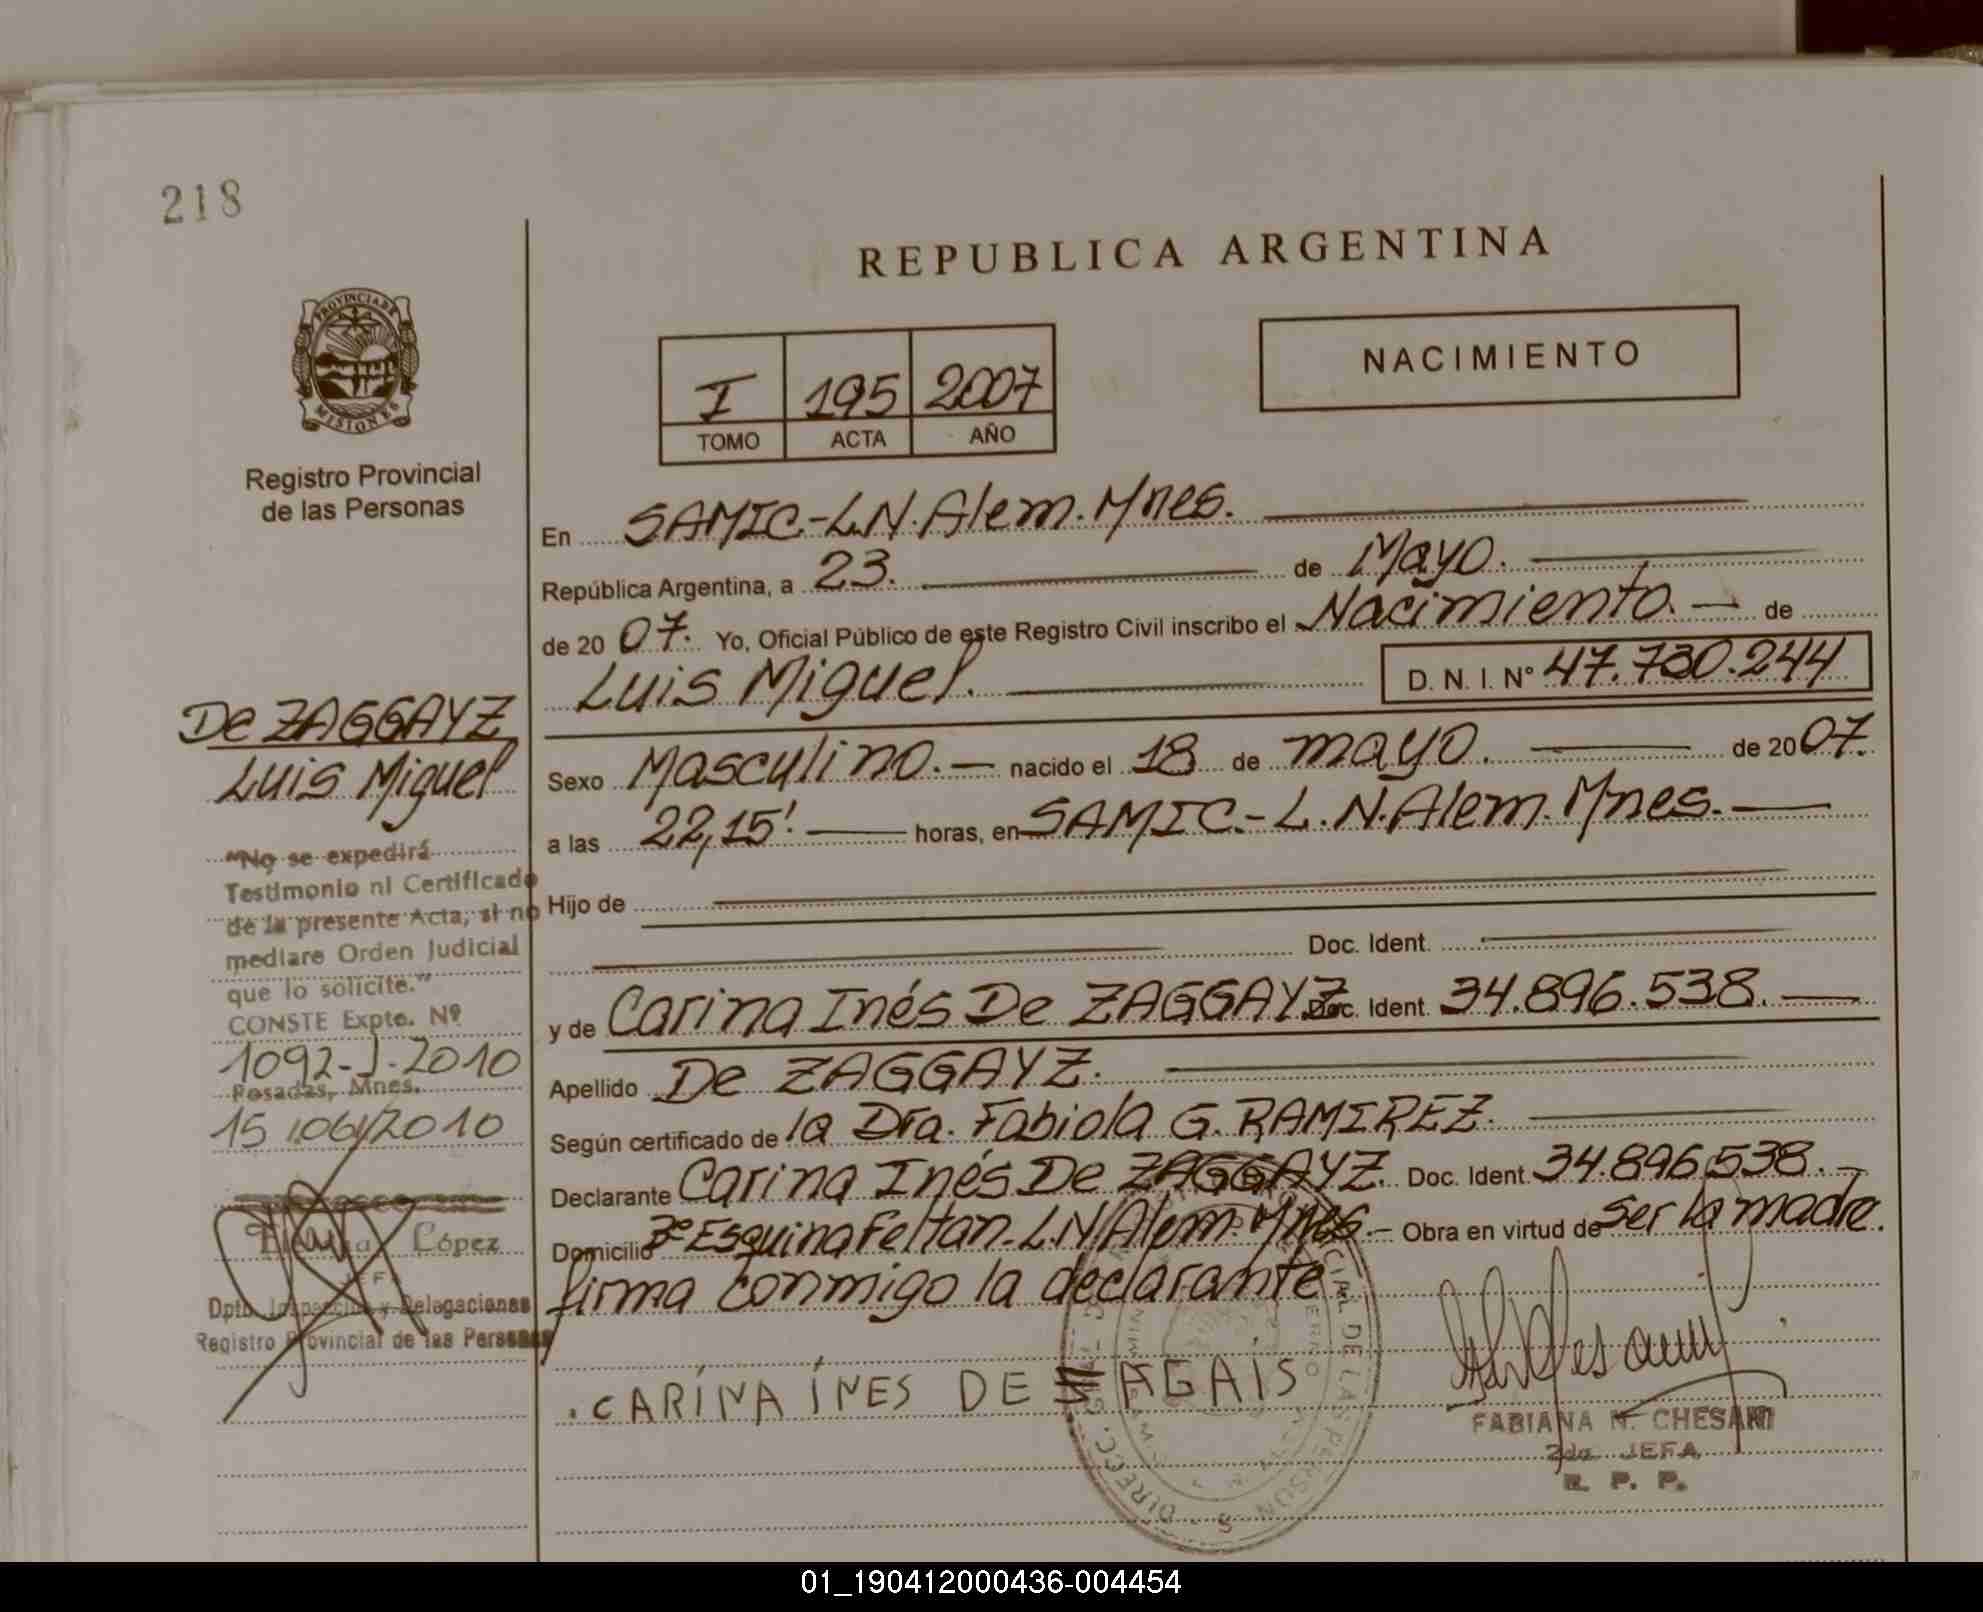 218
REPUBLICA ARGENTINA
PROVINCIA DE
MISIONES
Registro Provincial
de las Personas
I 195 2007
TOMO ACTA AÑO
NACIMIENTO
En SAMIC-L.N.Alem.Mnes.
República Argentina, a 23. de Mayo.
de 2007. Yo, Oficial Público de este Registro Civil inscribo el Nacimiento. de
Luis Miguel. D. N. I. Nº 47.730.244
Sexo Masculino. nacido el 18 de mayo. de 2007.
a las 22,15'. horas, en SAMIC.-L.N.Alem.Mnes.
Hijo de
Doc. Ident.
y de Carina Inés De ZAGGAYZ Doc. Ident. 34.896.538.
Apellido De ZAGGAYZ.
Según certificado de la Dra. Fabiola G. RAMIREZ.
Declarante Carina Inés De ZAGGAYZ. Doc. Ident. 34.896.538.
Domicilio Bº Esquina Feltan. L.N Alem. Mnes. Obra en virtud de ser la madre.
firma conmigo la declarante
.CARÍNA ÍNES DE AGAÍS
FABIANA N. CHESANI
2da JEFA
R. P. P.
De ZAGGAYZ
Luis Miguel
"No se expedirá
Testimonio ni Certificado
de la presente Acta, si no
mediare Orden Judicial
que lo solicite."
CONSTE Expte. Nº
1092-J-2010
Posadas, Mnes.
15/06/2010
López
JEFA
Dpto. Inspección y Delegaciones
Registro Provincial de las Personas
01_190412000436-004454